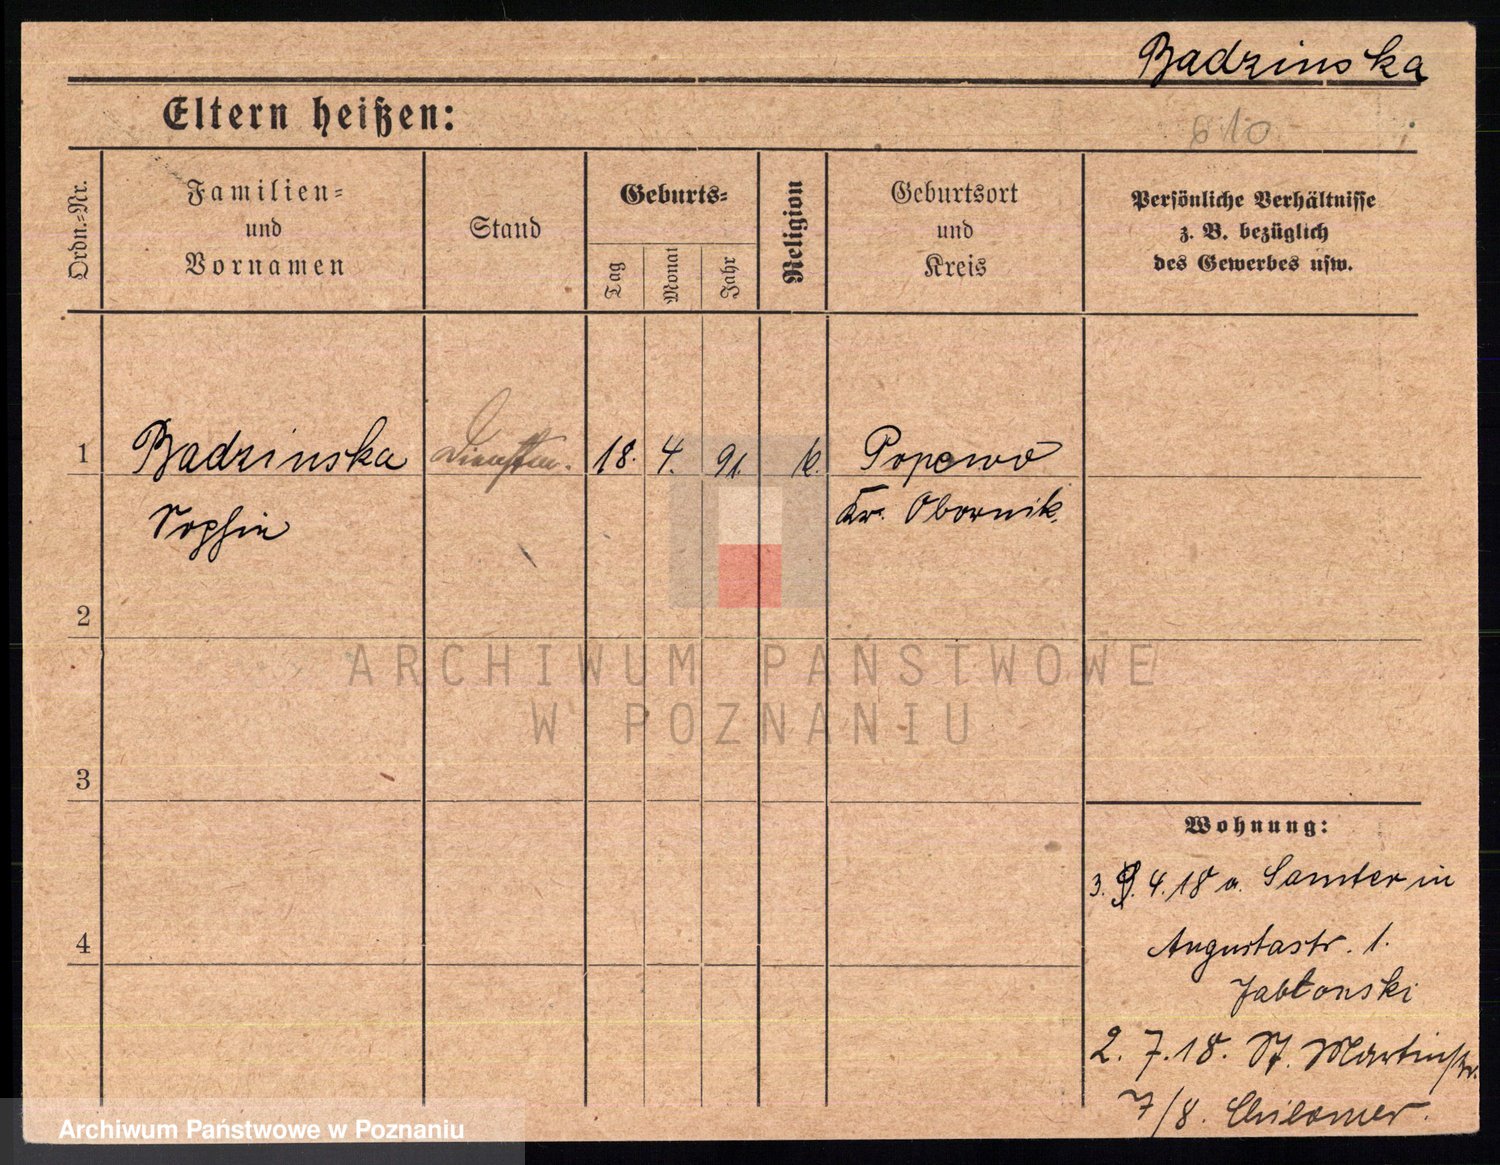 Badzinska
Eltern heißen:
610
Ordn.=Nr.
Familien=
und
Vornamen
Stand
Geburts=
Tag
Monat
Jahr
Religion
Geburtsort
und
Kreis
Persönliche Verhältnisse
z. B. bezüglich
des Gewerbes usw.
1
Badzinska
18. 4. 91. k.
Popowo
Sophie
Kr. Obornik.
2
ARCHIWUM PAŃSTWOWE
W POZNANIU
3
Wohnung:
3. 4. 18 a. Samter in
4
Augustastr. 1.
Jabłonski
2. 7. 18. St. Martinstr.
7/8.
Archiwum Państwowe w Poznaniu